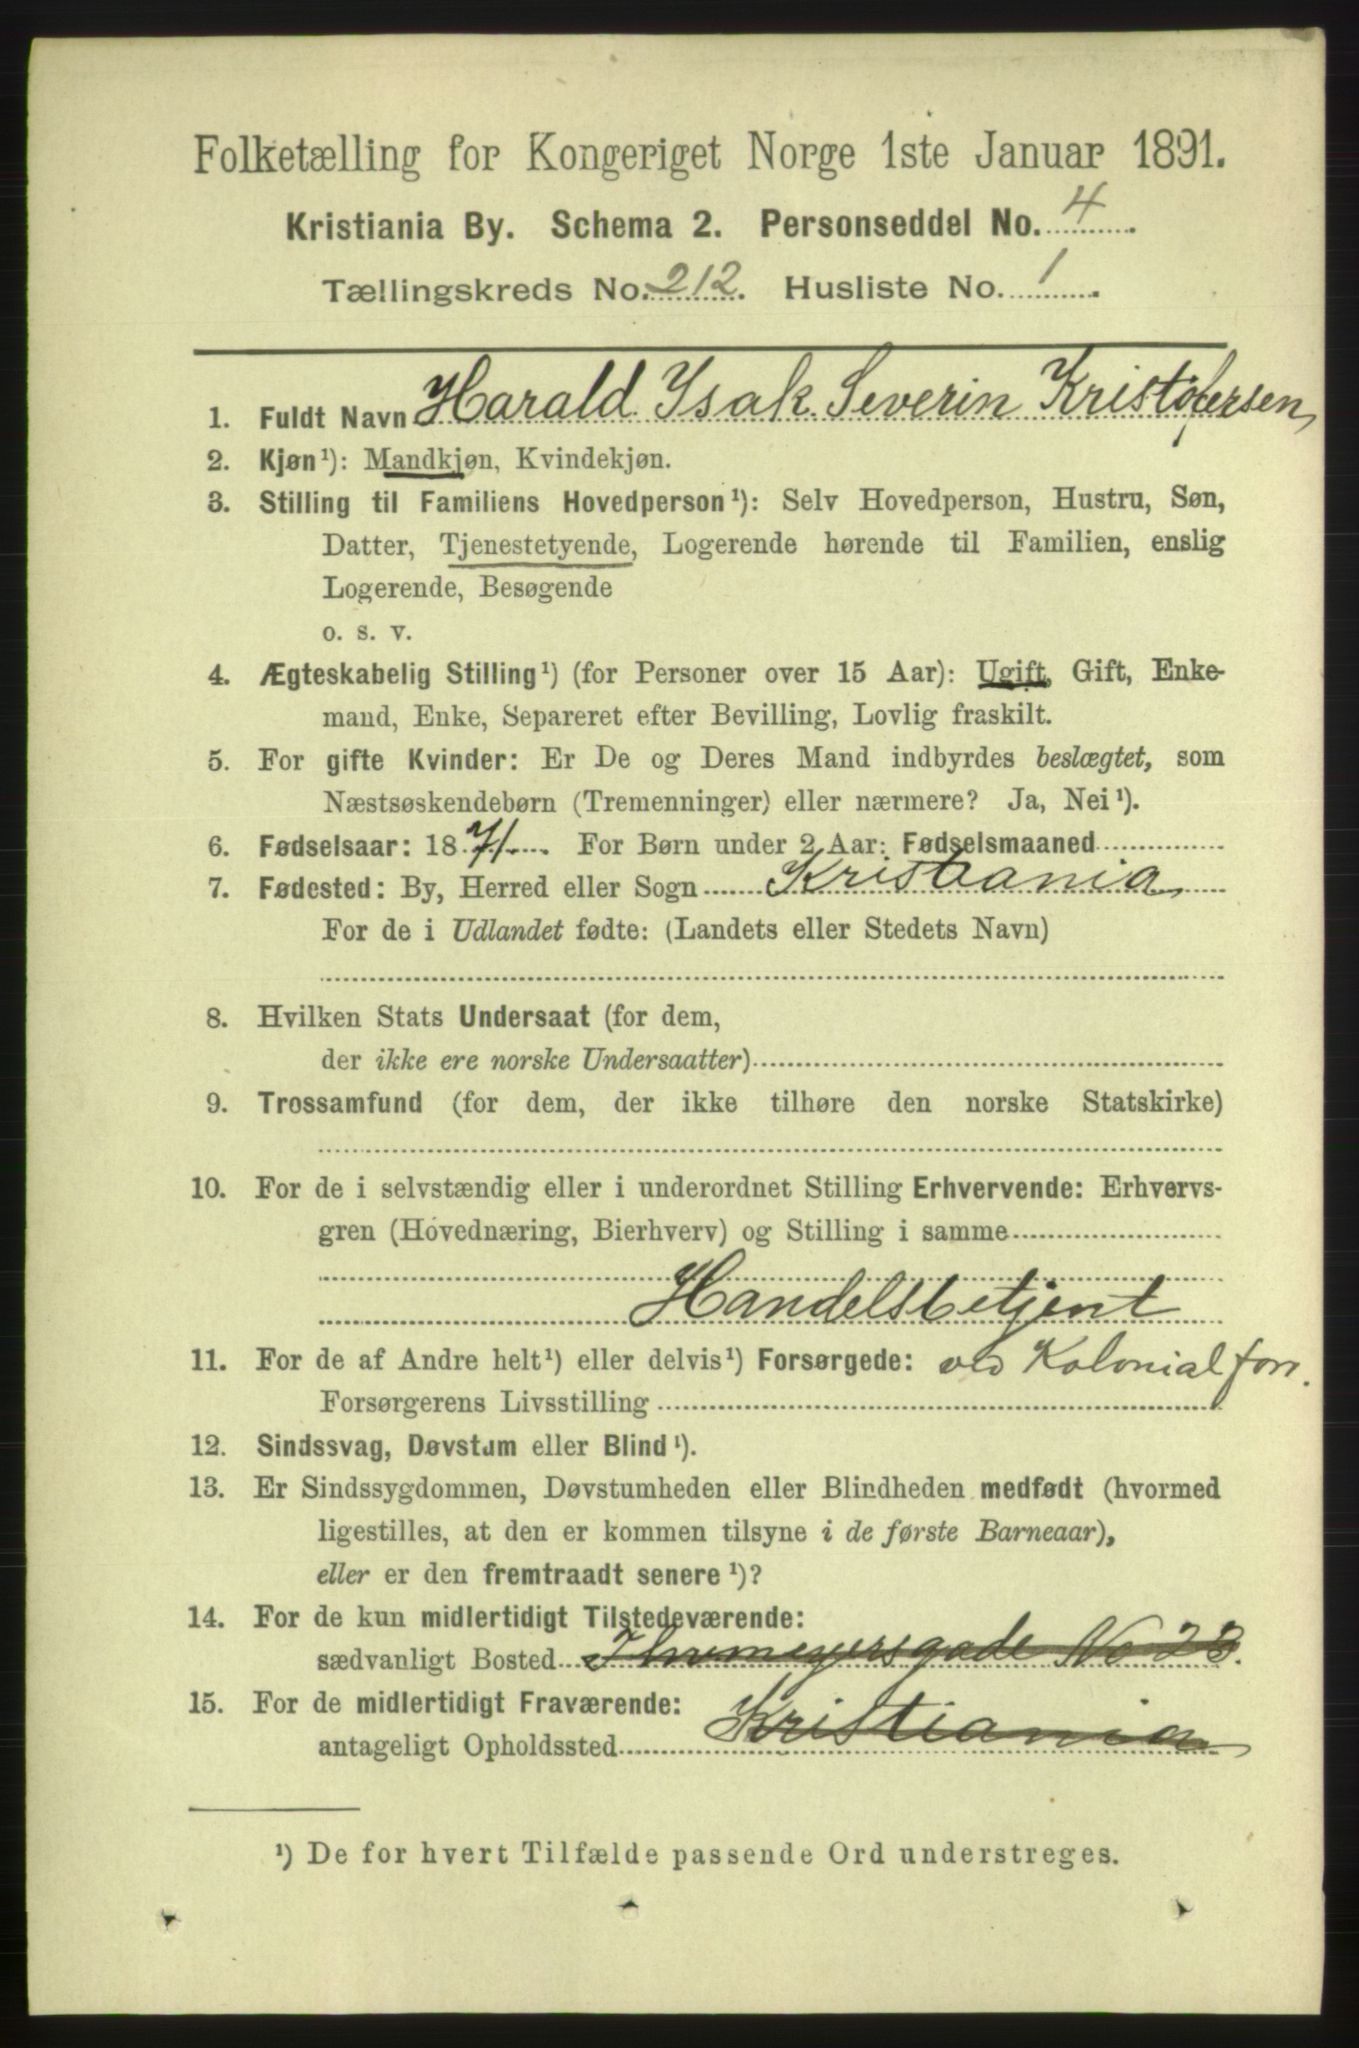 Folketælling for Kongeriget Norge 1ste Januar 1891.
Kristiania By. Schema 2. Personseddel No. 4
Tællingskreds No. 212. Husliste No. 1
1. Fuldt Navn Harald Isak Severin Kristofersen
2. Kjøn¹): Mandkjøn, Kvindekjøn.
3. Stilling til Familiens Hovedperson¹): Selv Hovedperson, Hustru, Søn,
Datter, Tjenestetyende, Logerende hørende til Familien, enslig
Logerende, Besøgende
o. s. v.
4. Ægteskabelig Stilling¹) (for Personer over 15 Aar): Ugift, Gift, Enke-
mand, Enke, Separeret efter Bevilling, Lovlig fraskilt.
5. For gifte Kvinder: Er De og Deres Mand indbyrdes beslægtet, som
Næstsøskendebørn (Tremenninger) eller nærmere? Ja, Nei¹).
6. Fødselsaar: 1871. For Børn under 2 Aar: Fødselsmaaned
7. Fødested: By, Herred eller Sogn Kristiania
For de i Udlandet fødte: (Landets eller Stedets Navn)
8. Hvilken Stats Undersaat (for dem,
der ikke ere norske Undersaatter)
9. Trossamfund (for dem, der ikke tilhøre den norske Statskirke)
10. For de i selvstændig eller i underordnet Stilling Erhvervende: Erhvervs-
gren (Hovednæring, Bierhverv) og Stilling i samme
Handelsbetjent
11. For de af Andre helt¹) eller delvis¹) Forsørgede: ved Kolonialforr.
Forsørgerens Livsstilling
12. Sindssvag, Døvstum eller Blind¹).
13. Er Sindssygdommen, Døvstumheden eller Blindheden medfødt (hvormed
ligestilles, at den er kommen tilsyne i de første Barneaar),
eller er den fremtraadt senere¹)?
14. For de kun midlertidigt Tilstedeværende:
sædvanligt Bosted Thvmeyersgade No 23.
15. For de midlertidigt Fraværende:
antageligt Opholdssted Kristiania
¹) De for hvert Tilfælde passende Ord understreges.